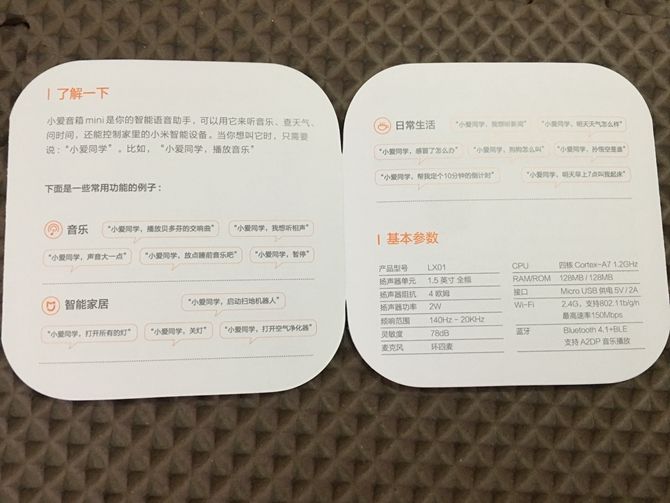 了解一下
小爱音箱mini是你的智能语音助手，可以用它来听音乐、查天气、
问时间，还能控制家里的小米智能设备。当你想叫它时，只需要
说：“小爱同学”。比如，“小爱同学，播放音乐”
下面是一些常用功能的例子：
音乐 “小爱同学，播放贝多芬的交响曲” “小爱同学，我想听相声”
“小爱同学，声音大一点” “小爱同学，放点睡前音乐吧” “小爱同学，暂停”
智能家居 “小爱同学，启动扫地机器人”
“小爱同学，打开所有的灯” “小爱同学，关灯” “小爱同学，打开空气净化器”
日常生活 “小爱同学，我想听新闻” “小爱同学，明天天气怎么样”
“小爱同学，感冒了怎么办” “小爱同学，狗狗怎么叫” “小爱同学，孙悟空是谁”
“小爱同学，帮我定个10分钟的倒计时” “小爱同学，明天早上7点叫我起床”
基本参数
产品型号 LX01
扬声器单元 1.5 英寸 全频
扬声器阻抗 4 欧姆
扬声器功率 2W
频响范围 140Hz - 20KHz
灵敏度 78dB
麦克风 环四麦
CPU 四核 Cortex-A7 1.2GHz
RAM/ROM 128MB / 128MB
接口 Micro USB 供电 5V / 2A
Wi-Fi 2.4G，支持802.11b/g/n
最高速率150Mbps
蓝牙 Bluetooth 4.1+BLE
支持 A2DP 音乐播放